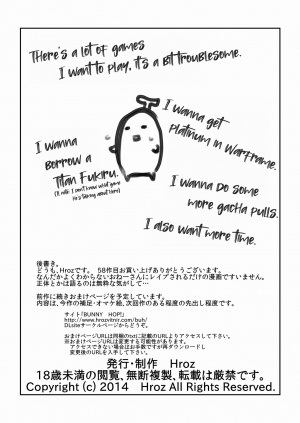 There's a lot of games
I want to play, it's a bit troublesome.
I wanna get
Platinum in Warframe.
I wanna
borrow a
Titan Fukiru.
I wanna do some
more gacha pulls.
I also want more time.
後書き。
どうも、Hrozです。 58作目お買い上げありがとうございます。
なんだかよくわからないおねーさんにレイプされるだけの漫画ですいません。
正体とかは語るのは無粋な気がして…
前作に続きおまけページを予定しています。
内容は、今作の補足・オマケ絵、次回作のある程度の先出し程度です。
サイト「BUNNY HOP!」
http://www.hrozvitnir.com/buh/
DLsiteサークルページからどうぞ。
おまけページURLは同梱のtxtに記載のURLよりアクセスして下さい。
※おまけページURLは変更する可能性があります。
アクセスできない場合はお手数ですが再ダウンロードし
変更後のURLを入手して下さい。
発行・制作 Hroz
18歳未満の閲覧、無断複製、転載は厳禁です。
Copyright (c) 2014 Hroz All Rights Reserved.